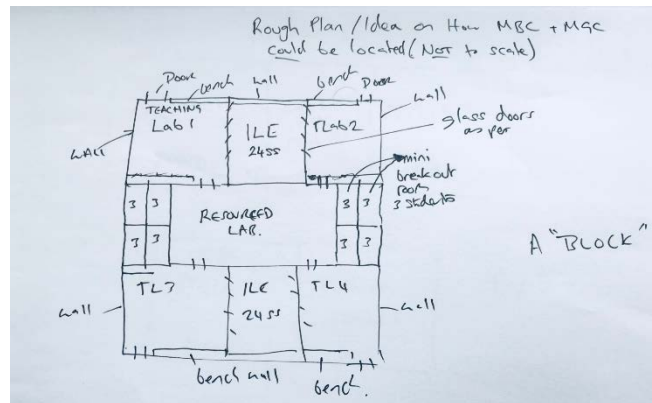 Rough Plan / Idea on How MBC + MGC
could be located (NOT to scale)
Door bench wall bench Door
TEACHING
Lab 1
ILE
24 SS
TLab2
wall
WALL
glass doors
as per
mini
breakout
room
3 students
3 3
3 3
RESOURCED
LAB.
3 3
3 3
A "BLOCK"
TL3
ILE
24 SS
TL4
wall
wall
bench wall
bench.